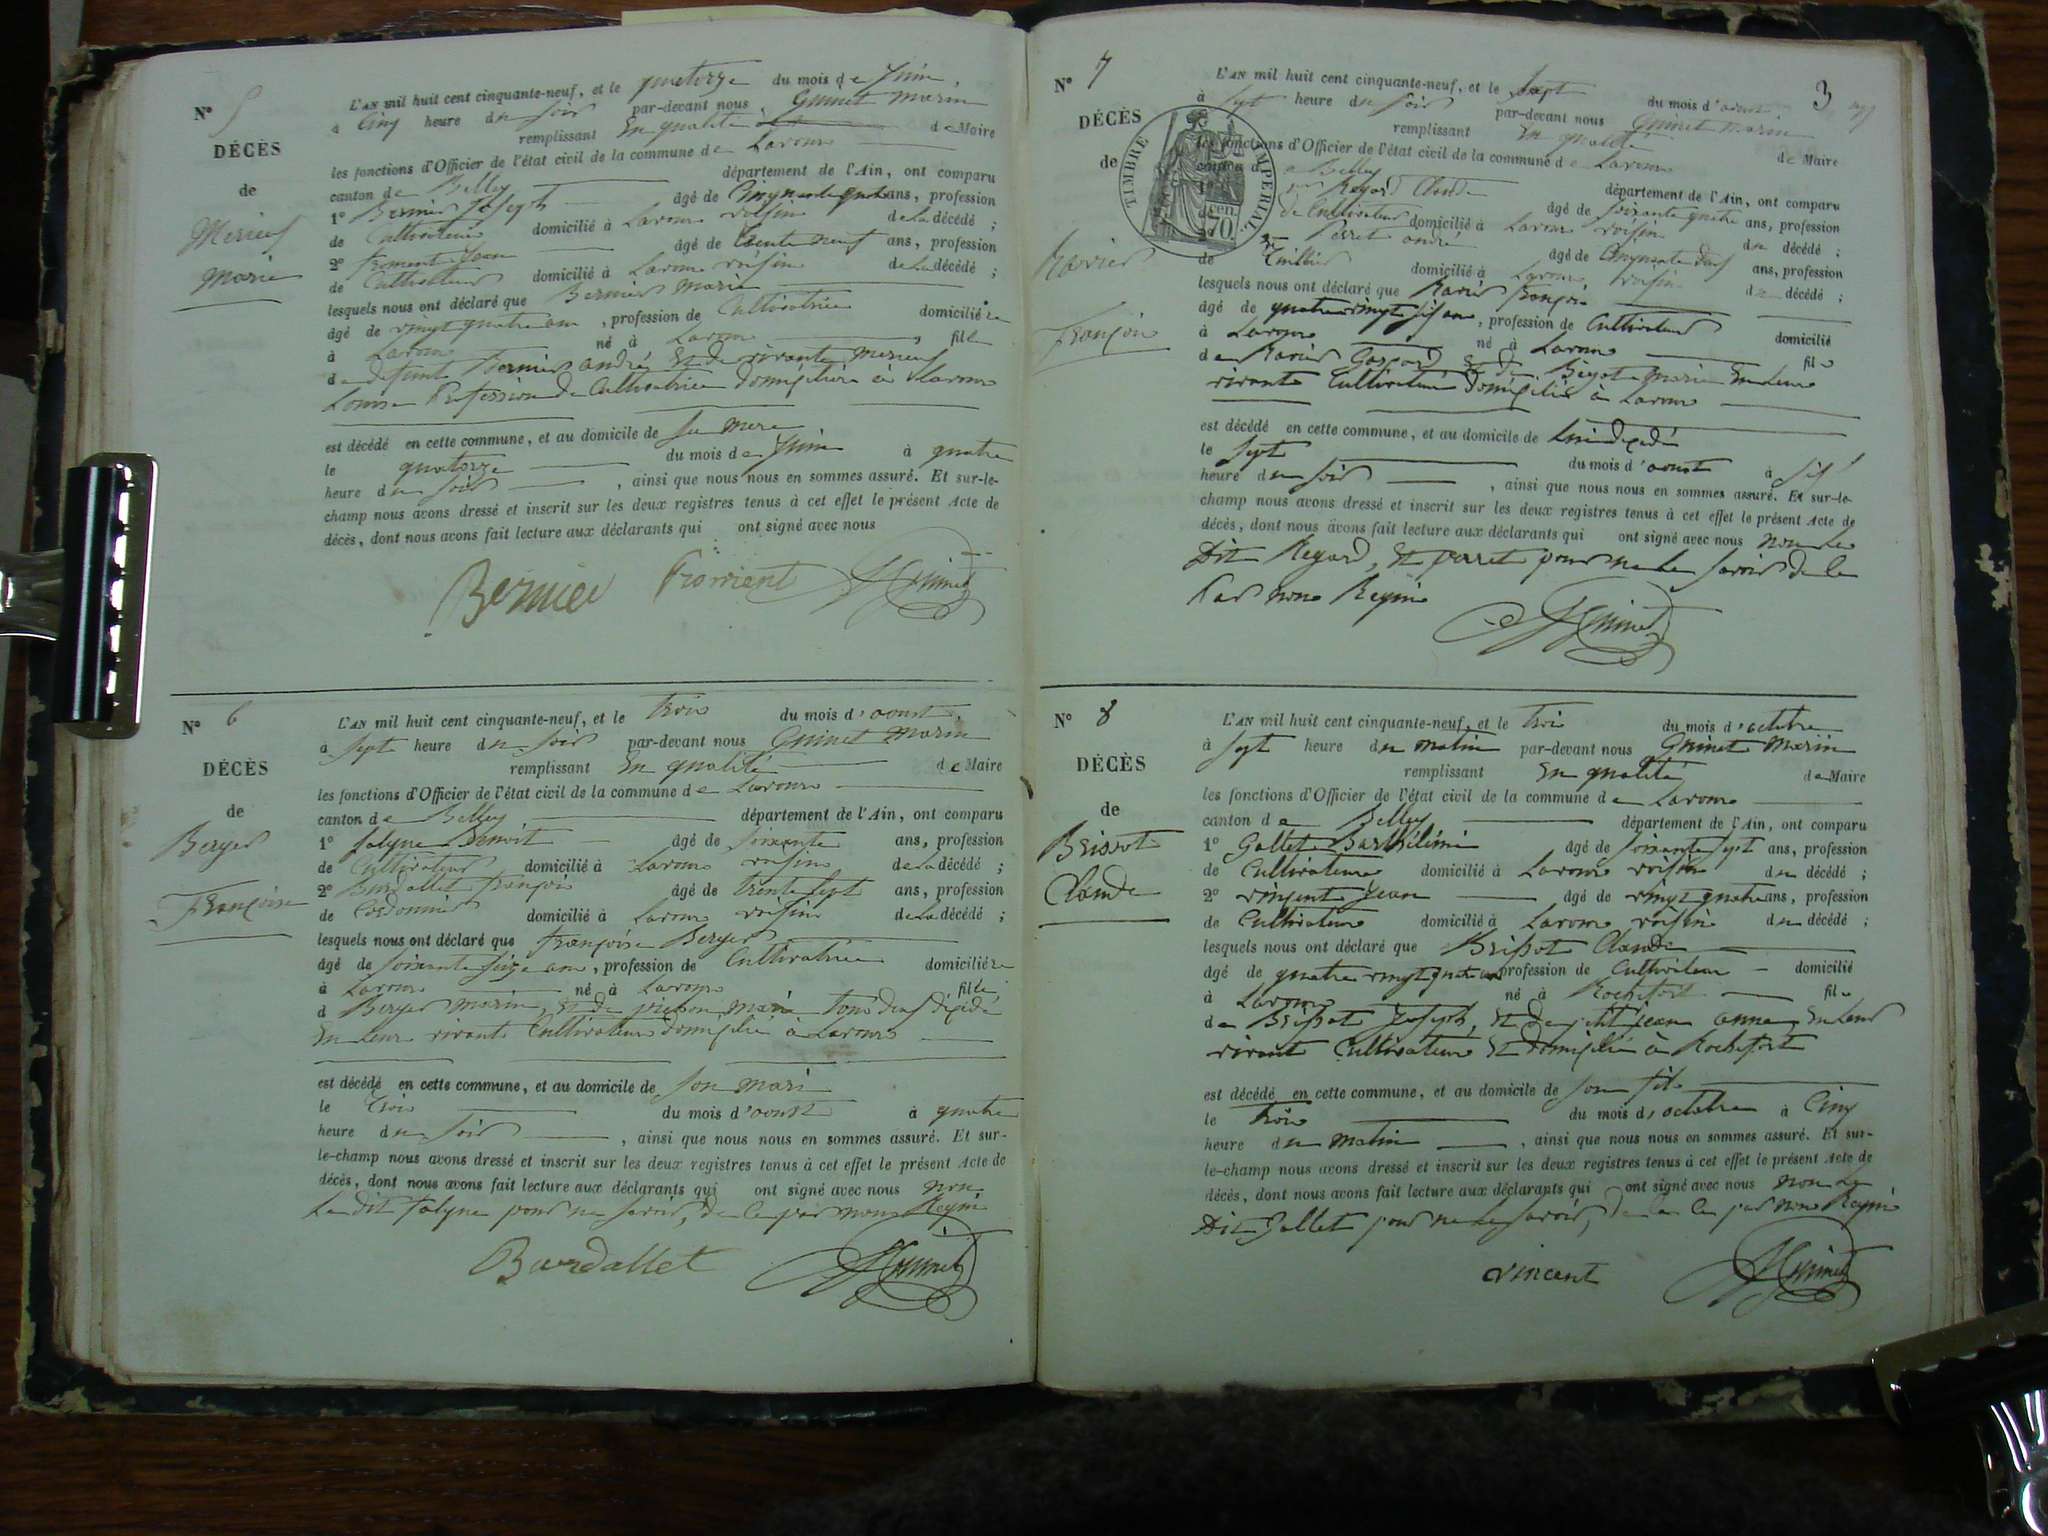 N° 5
DÉCÈS
de
Merieux
Marie
L'AN mil huit cent cinquante-neuf, et le quatorze du mois de Juin,
à Cinq heure du soir par-devant nous Guinet Marin
remplissant En qualité de Maire
les fonctions d'Officier de l'état civil de la commune de Lavours
canton de Belley département de l'Ain, ont comparu
1° Bernier Joseph âgé de Cinquante quatre ans, profession
de Cultivateur domicilié à Lavours voisin de la décédé ;
2° Froment Jean âgé de trente neuf ans, profession
de Cultivateur domicilié à Lavours voisin de la décédé ;
lesquels nous ont déclaré que Bernier Marie
âgé de vingt quatre ans, profession de Cultivatrice domicilière
à Lavours né à Lavours fille
de defunt Bernier andré Et de vivante Merieux
Louise Profession de Cultivatrice domicilière à Lavours
est décédé en cette commune, et au domicile de sa mere
le quatorze du mois de Juin à quatre
heure du soir, ainsi que nous nous en sommes assuré. Et sur-le-
champ nous avons dressé et inscrit sur les deux registres tenus à cet effet le présent Acte de
décès, dont nous avons fait lecture aux déclarants qui ont signé avec nous
Bernier Froment Guinet
N° 6
DÉCÈS
de
Berger
Françoise
L'AN mil huit cent cinquante-neuf, et le trois du mois d'aoust,
à sept heure du soir par-devant nous Guinet Marin
remplissant En qualité de Maire
les fonctions d'Officier de l'état civil de la commune de Lavours
canton de Belley département de l'Ain, ont comparu
1° Benoit âgé de soixante ans, profession
de Cultivateur domicilié à Lavours voisin de la décédé ;
2° Burdallet François âgé de trente sept ans, profession
de Cordonnier domicilié à Lavours voisin de la décédé ;
lesquels nous ont déclaré que Françoise Berger
âgé de soixante seize ans, profession de Cultivatrice domicilière
à Lavours né à Lavours fille
d Berger Marin, Et de marie tous deux décédé
En leur vivant Cultivateur domicilié à Lavours
est décédé en cette commune, et au domicile de son mari
le trois du mois d'aoust à quatre
heure du soir, ainsi que nous nous en sommes assuré. Et sur-
le-champ nous avons dressé et inscrit sur les deux registres tenus à cet effet le présent Acte de
décès, dont nous avons fait lecture aux déclarants qui ont signé avec nous non
Le dit pour ne savoir, de ce par nous Requis
Burdallet Guinet
3
N° 7
DÉCÈS
de
Ravier
François
TIMBRE IMPERIAL
70
L'AN mil huit cent cinquante-neuf, et le sept du mois d'aoust
à sept heure du soir par-devant nous Guinet Marin
remplissant En qualité de Maire
les fonctions d'Officier de l'état civil de la commune de Lavours
canton de Belley département de l'Ain, ont comparu
1° Regard Claude âgé de soixante quatre ans, profession
de Cultivateur domicilié à Lavours voisin du décédé ;
2° Perret andré âgé de Cinquante deux ans, profession
de domicilié à Lavours voisin du décédé ;
lesquels nous ont déclaré que Ravier François
âgé de quatre vingt six ans, profession de Cultivateur domicilié
à Lavours né à Lavours fils
de Ravier Gaspard Et de Marie En leur
vivant Cultivateur domicilié à Lavours
est décédé en cette commune, et au domicile de
le sept du mois d'aoust à six
heure du soir, ainsi que nous nous en sommes assuré. Et sur-le-
champ nous avons dressé et inscrit sur les deux registres tenus à cet effet le présent Acte de
décès, dont nous avons fait lecture aux déclarants qui ont signé avec nous non Le
Dit Regard, Et perret pour ne Le savoir de Ce
Par nous Requis
Guinet
N° 8
DÉCÈS
de
Brissot
Claude
L'AN mil huit cent cinquante-neuf, et le trois du mois d'octobre
à sept heure du matin par-devant nous Guinet Marin
remplissant En qualité de Maire
les fonctions d'Officier de l'état civil de la commune de Lavours
canton de Belley département de l'Ain, ont comparu
1° Gallet Barthélémi âgé de soixante sept ans, profession
de Cultivateur domicilié à Lavours voisin du décédé ;
2° vincent Jean âgé de vingt quatre ans, profession
de Cultivateur domicilié à Lavours voisin du décédé ;
lesquels nous ont déclaré que Brissot Claude
âgé de quatre vingt quatre ans profession de Cultivateur domicilié
à Lavours né à Rochefort fils
de Brissot Joseph, Et de petit jean anne, En leur
vivant Cultivateur Et domicilié à Rochefort
est décédé en cette commune, et au domicile de son fils
le trois du mois d'octobre à Cinq
heure du matin, ainsi que nous nous en sommes assuré. Et sur-
le-champ nous avons dressé et inscrit sur les deux registres tenus à cet effet le présent Acte de
décès, dont nous avons fait lecture aux déclarants qui ont signé avec nous non Le
Dit Gallet pour ne Le savoir, de Ce par nous Requis
vincent Guinet